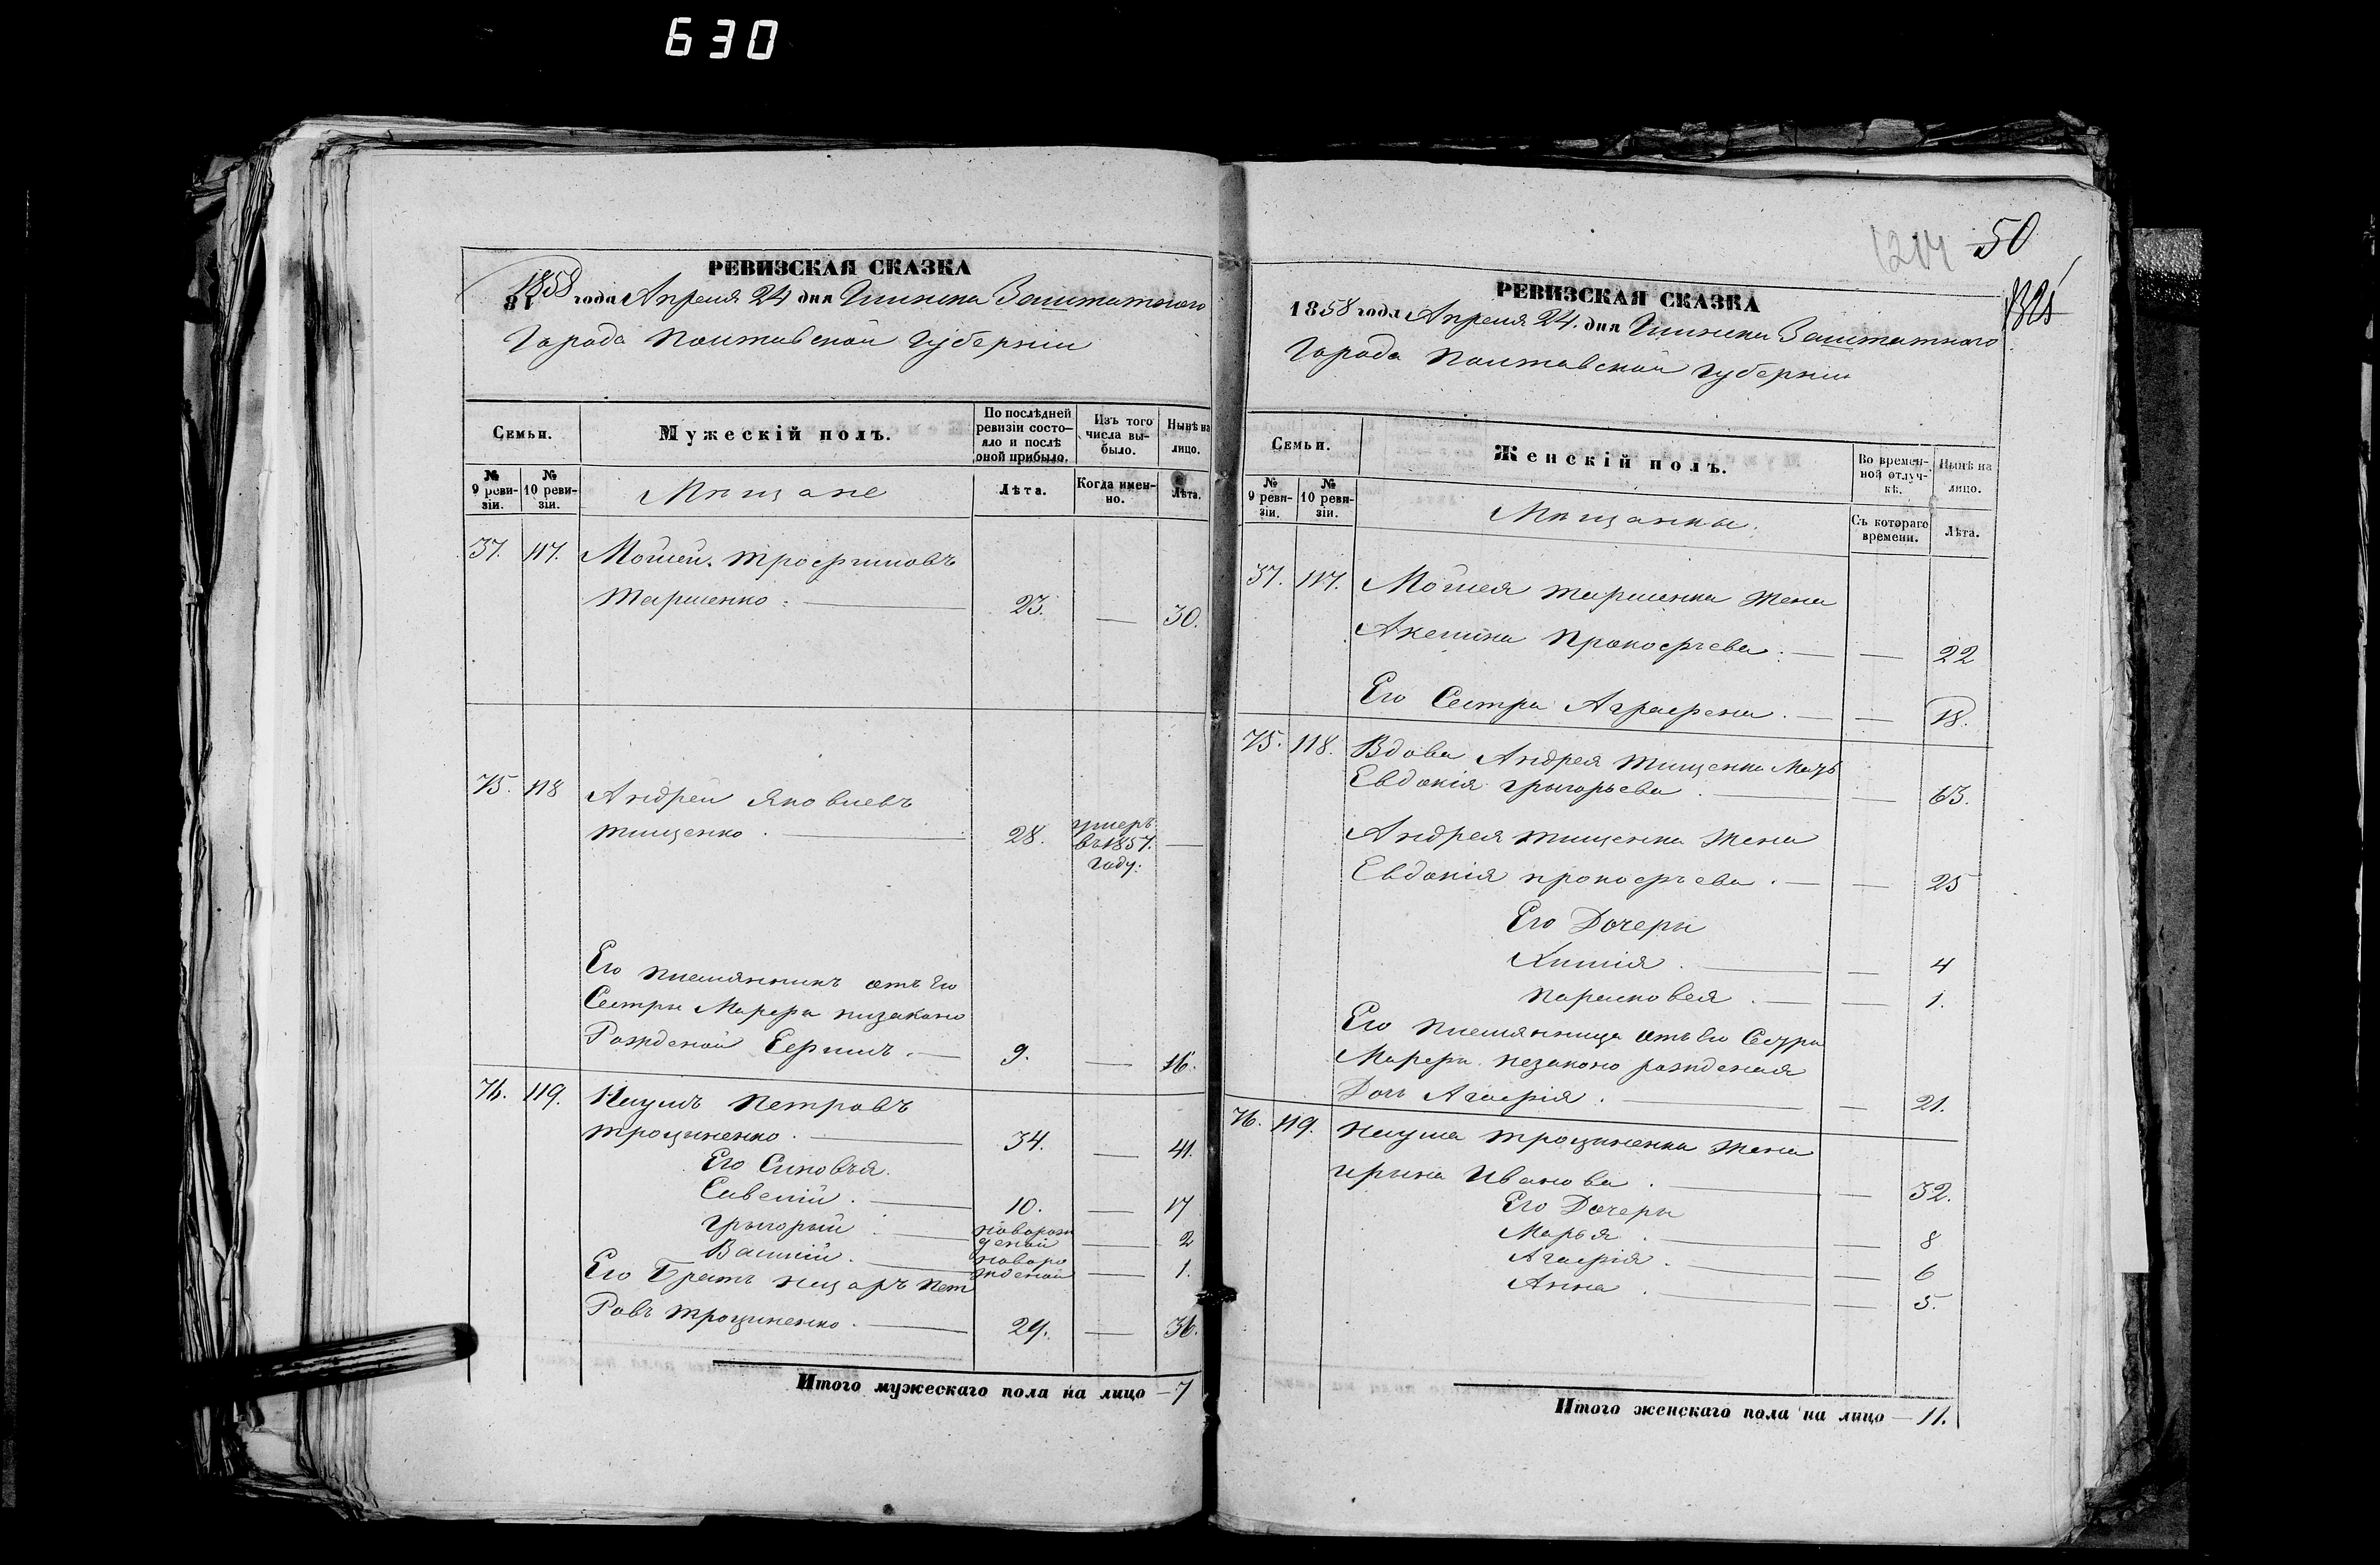 630
РЕВИЗСКАЯ СКАЗКА
1858 года Апреля 24 дня Глинска Заштатного
Города Полтавской Губерніи
Семьи.
Мужескій полъ.
По послѣдней ревизіи состояло и послѣ оной прибыло.
Изъ того числа выбыло.
Нынѣ на лицо.
№ 9 ревизіи.
№ 10 ревизіи.
Мѣщане
Лѣта.
Когда именно.
Лѣта.
37. 117. Мойсей Трофимовъ
23. — 30.
75. 118 Андрей Яковлевъ
Тищенко. 28. умеръ въ 1857. году. —
Его племянникъ отъ Его
Сестры Марфы низаконо
Рожденой Ефимъ. 9. — 16.
76. 119. Наумъ Петровъ
Троциненко. 34. — 41.
Его Синовья.
Савелій. 10. — 17
Грыгорый новорожденой — 2
Василій. новорожденой — 1.
Его Братъ Назаръ Пет
Ровъ Троциненко. 29. — 36.
Итого мужескаго пола на лицо — 7
1214 50
РЕВИЗСКАЯ СКАЗКА
1858 года Апреля 24. дня Глинска Заштатного
Города Полтавской Губерніи
Семьи.
Женскій полъ.
Во временной отлучкѣ.
Нынѣ на лицо.
№ 9 ревизіи.
№ 10 ревизіи.
Мѣщанки.
Съ котораго времени.
Лѣта.
37. 117. Мойсея жена
Акелина Прокофьева. — 22
Его Сестра Аграфена. — 18.
75. 118. Вдова Андрея Тищенка Мать
Евдокія Грыгорьева. — 63.
Андрея Тищенка Жена
Евдокія Прокофьева. — 25
Его Дочери
— 4
Парасковея. — 1.
Его племянница отъ Его Сестры
Марфы незаконо рожденая
Дочь Агафія. — 21.
76. 119. Наума Троциненка Жена
Ирына Иванова. — 32.
Его Дочери
Марья. — 8
Агафія. — 6
Анна. — 5.
Итого женскаго пола на лицо — 11.